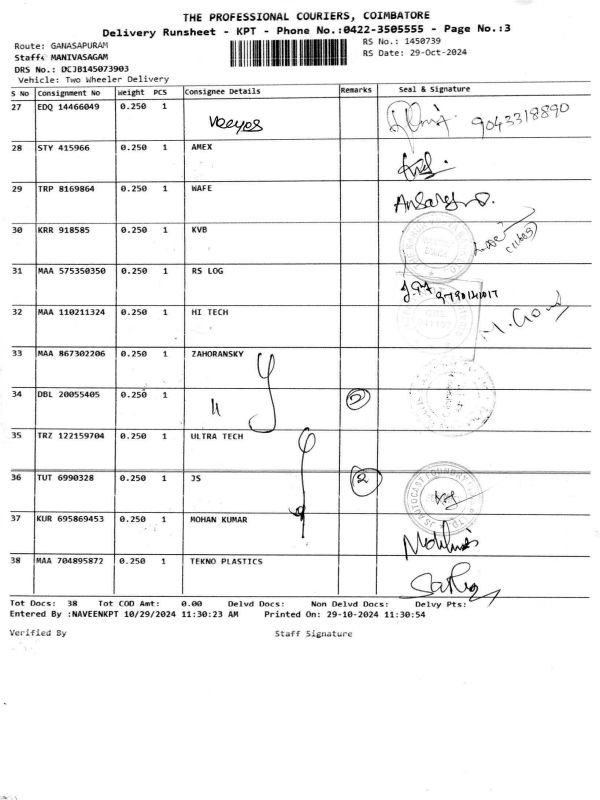 THE PROFESSIONAL COURIERS, COIMBATORE
Delivery Runsheet - KPT - Phone No.:0422-3505555 - Page No.:3
Route: GANASAPURAM RS No.: 1450739
Staff: MANIVASAGAM RS Date: 29-Oct-2024
DRS No.: DCJB145073903
Vehicle: Two Wheeler Delivery
S No Consignment No Weight PCS Consignee Details Remarks Seal & Signature
27 EDQ 14466049 0.250 1 9043318890
28 STY 415966 0.250 1 AMEX
29 TRP 8169864 0.250 1 WAFE
30 KRR 918585 0.250 1 KVB
31 MAA 575350350 0.250 1 RS LOG 9790141017
32 MAA 110211324 0.250 1 HI TECH
33 MAA 867302206 0.250 1 ZAHORANSKY
34 DBL 20055405 0.250 1 11 2
35 TRZ 122159704 0.250 1 ULTRA TECH
36 TUT 6990328 0.250 1 JS 2
37 KUR 695869453 0.250 1 MOHAN KUMAR
38 MAA 704895872 0.250 1 TEKNO PLASTICS
Tot Docs: 38 Tot COD Amt: 0.00 Delvd Docs: Non Delvd Docs: Delvy Pts:
Entered By :NAVEENKPT 10/29/2024 11:30:23 AM Printed On: 29-10-2024 11:30:54
Verified By Staff Signature